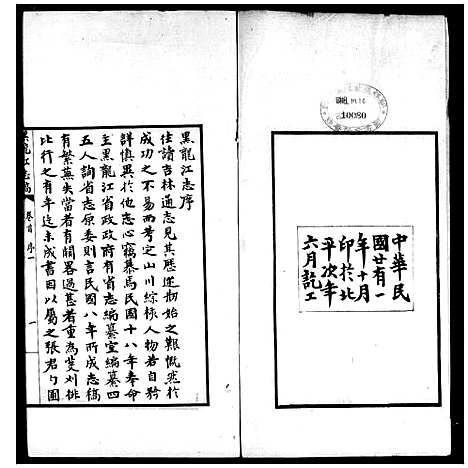 中華民
國廿有一
年十月
印於北
平次年
六月訖工
10080
黑龍江志序
往讀吉林通志見其歷述刱始之艱慨然於
成功之不易而考定山川綜核人物若自矜
詳慎異於他志心竊慕焉民國十八年奉命
至黑龍江省政府有省志編纂室編纂四
五人詢省志原委則言民國八年所成志稿
有繁蕪失當者有闕略過甚者重為芟刈排
比行之有年迄未成書因以屬之張君勺圃
黑龍江志稿
卷首 序
一